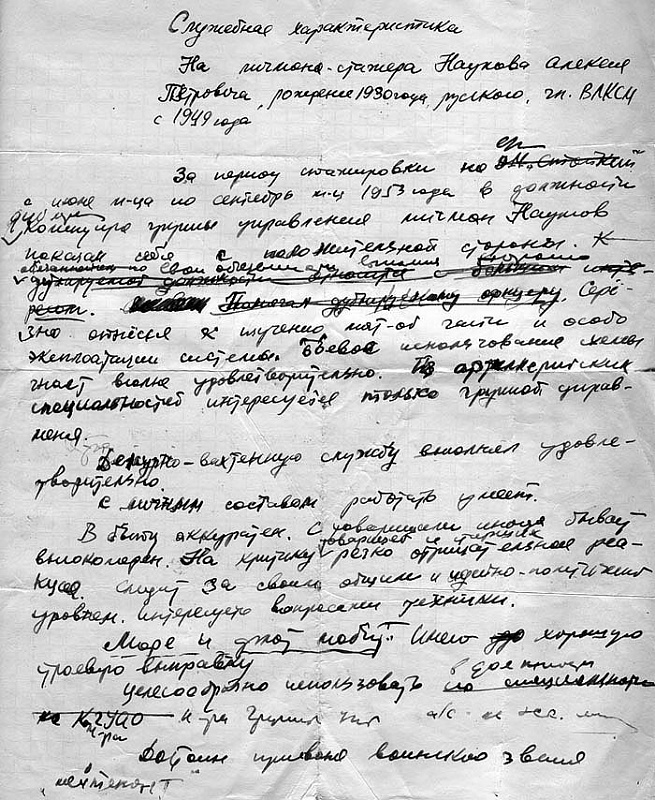 Служебная характеристика
На мичмана-стажера Наумова Алексея
Петровича, рождения 1930 года, русского, чл. ВЛКСМ
с 1949 года
За период стажировки на эм. „Стойкий"
с июня м-ца по сентябрь м-ц 1953 года в должности
командира группы управления мичман Наумов
показал себя с положительной стороны. К
своим обязанностям
дублируемой должности относится с большим инте-
ресом. Помогал дублируемому офицеру. Серь-
езно отнёсся к изучению мат-об части и особо
эксплоатации системы. Боевое использование
знает вполне удовлетворительно. Из артиллерийских
специальностей интересуется только группой управ-
ления.
Дежурно-вахтенную службу выполнял удовле-
творительно.
С личным составом работать умеет.
В быту аккуратен. С товарищами иногда бывает
товарищей и старших
высокомерен. На критику резко отрицательная реа-
кция. Следит за своим общим и идейно-политич
уровнем. Интересуется вопросами техники.
Море и любит. Имеет хорошую
строевую выправку
Целесообразно использовать по специальности
к-ра группы
Достоин присвоения воинского звания
„лейтенант"